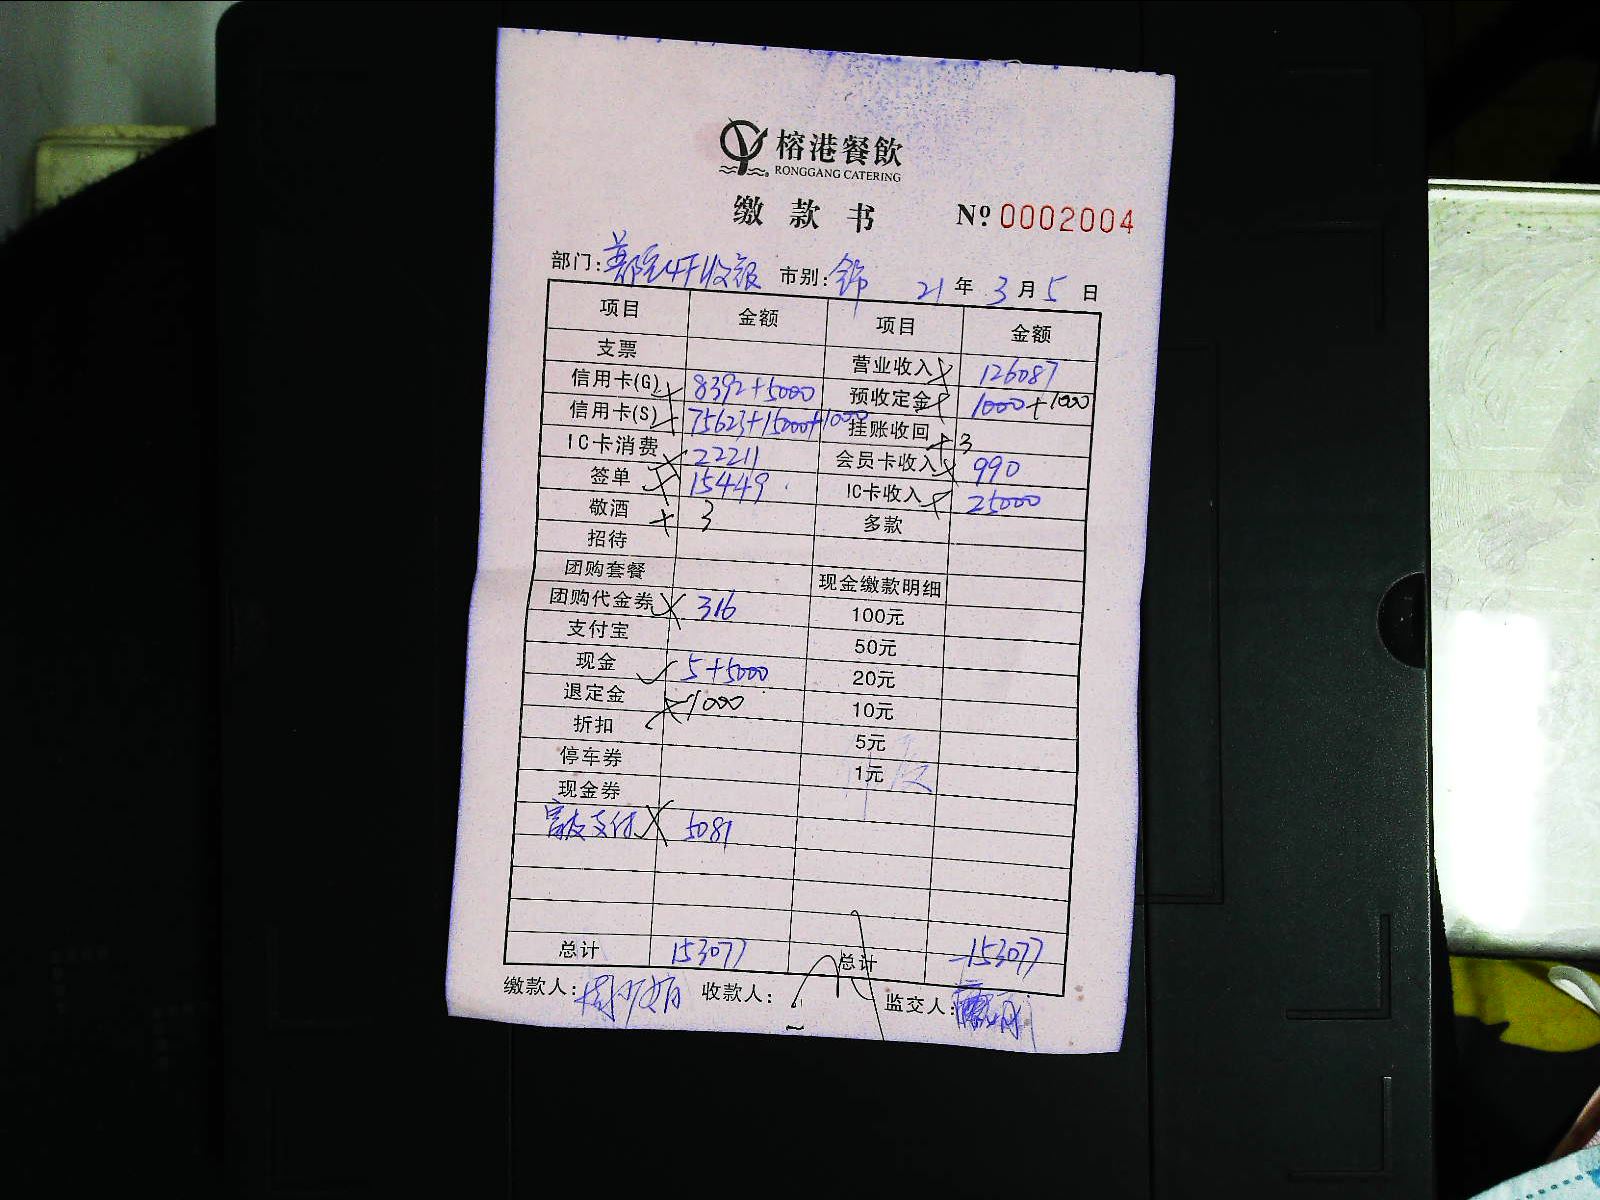 榕港餐飲
RONGGANG CATERING
缴款书 Nº 0002004
部门: 市别: 21年3月5日
项目 金额 项目 金额
支票 营业收入 126087
信用卡(G) 8392+5000 预收定金 1000+1000
信用卡(S) 75623+15000+1000 挂账收回 3
IC卡消费 22211 会员卡收入 990
签单 15449 IC卡收入 25000
敬酒 3 多款
招待
团购套餐 现金缴款明细
团购代金券 316 100元
支付宝 50元
现金 5+5000 20元
退定金 1000 10元
折扣 5元
停车券 1元
现金券
支付 5081
总计 153077 总计 153077
缴款人: 收款人: 监交人: